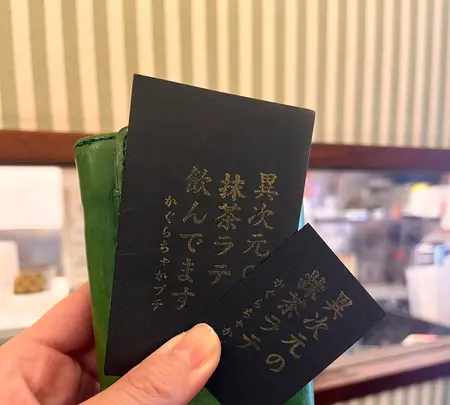 異次元の
抹茶ラテ
飲んでます
かぐらちゃかプチ
異次元の
抹茶ラテ
かぐらちゃか